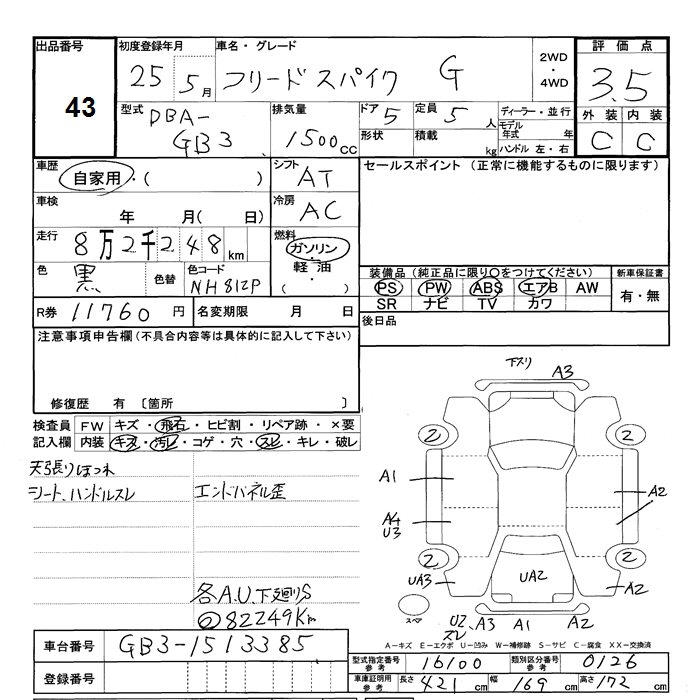 出品番号 初度登録年月 車名・グレード 2WD ・ 4WD 評価点
43 25 5月 フリードスパイク G 3.5
型式 DBA-GB3 排気量 1500cc ドア 5 定員 5人 ディーラー・並行 外装 内装
形状 積載 kg モデル年式 年 ハンドル 左・右 C C
車歴 自家用・( ) シフト AT セールスポイント (正常に機能するものに限ります)
車検 年 月( 日) 冷房 AC
走行 8万2千248km 燃料 ガソリン・軽油・( )
色 黒 色替 色コード NH812P
装備品(純正品に限り○をつけてください) 新車保証書
PS PW ABS エアB AW 有・無
SR ナビ TV カワ
R券 11760円 名変期限 月 日 後日品
注意事項申告欄(不具合内容等は具体的に記入して下さい)
修復歴 有 〔箇所 〕
検査員 FW キズ・飛石・ヒビ割・リペア跡・×要
記入欄 内装 キズ・汚レ・コゲ・穴・スレ・キレ・破レ
天張りほつれ
シート、ハンドルスレ エンドパネル歪
各A.U.下廻りS
82249Km
下スリ A3
2 2
A1 A2
A4
U3
2 2
UA3 UA2 A2
スペア U2 スレ A3 A1 A2
A-キズ E-エクボ U-凹み W-補修跡 S-サビ C-腐食 XX-交換済
車台番号 GB3-1513385
登録番号
型式指定番号 参考 16100 類別区分番号 参考 0126
車庫証明用 参考 長さ 421cm 幅 169cm 高さ 172cm